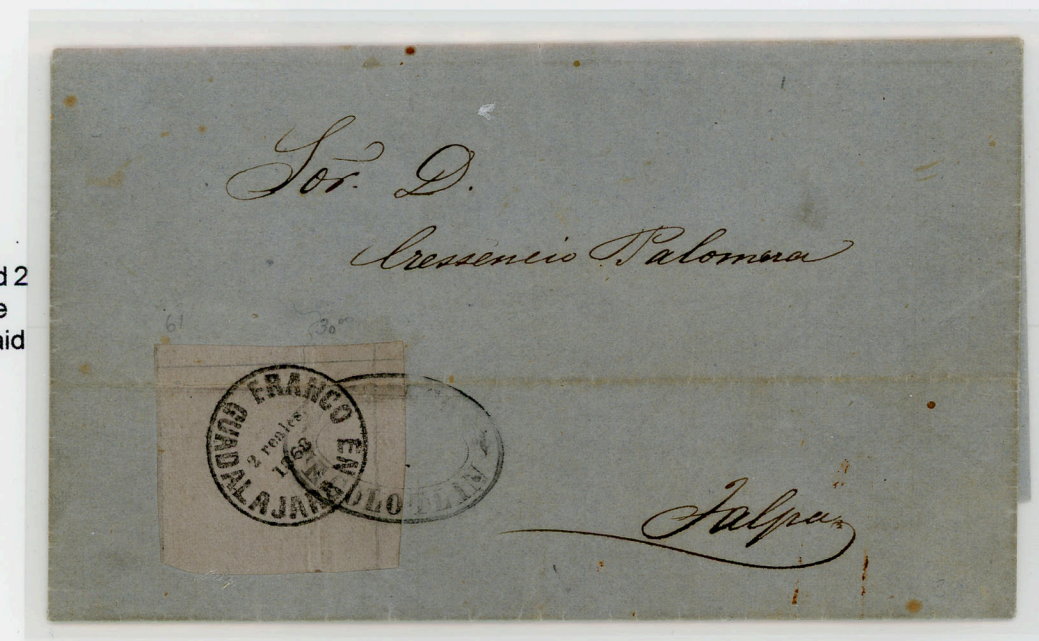 d 2
e
aid
Sor. D.
Cressencio Palomera
61
30⁰⁰
FRANCO EN
GUADALAJARA
2 reales
1868
COLOTLAN
Jalpa